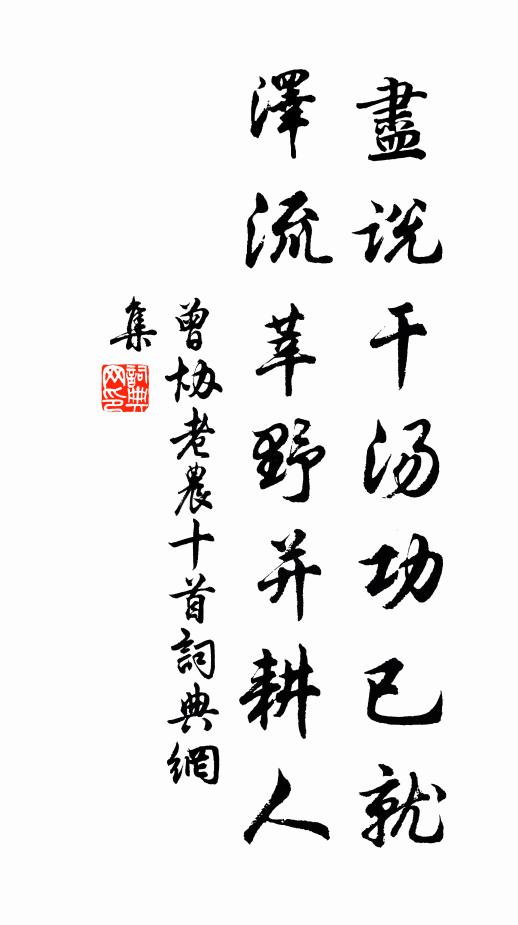 盡説干湯功已就
澤流莘野并耕人
曾協老農十首詞典網
集
詞典网印